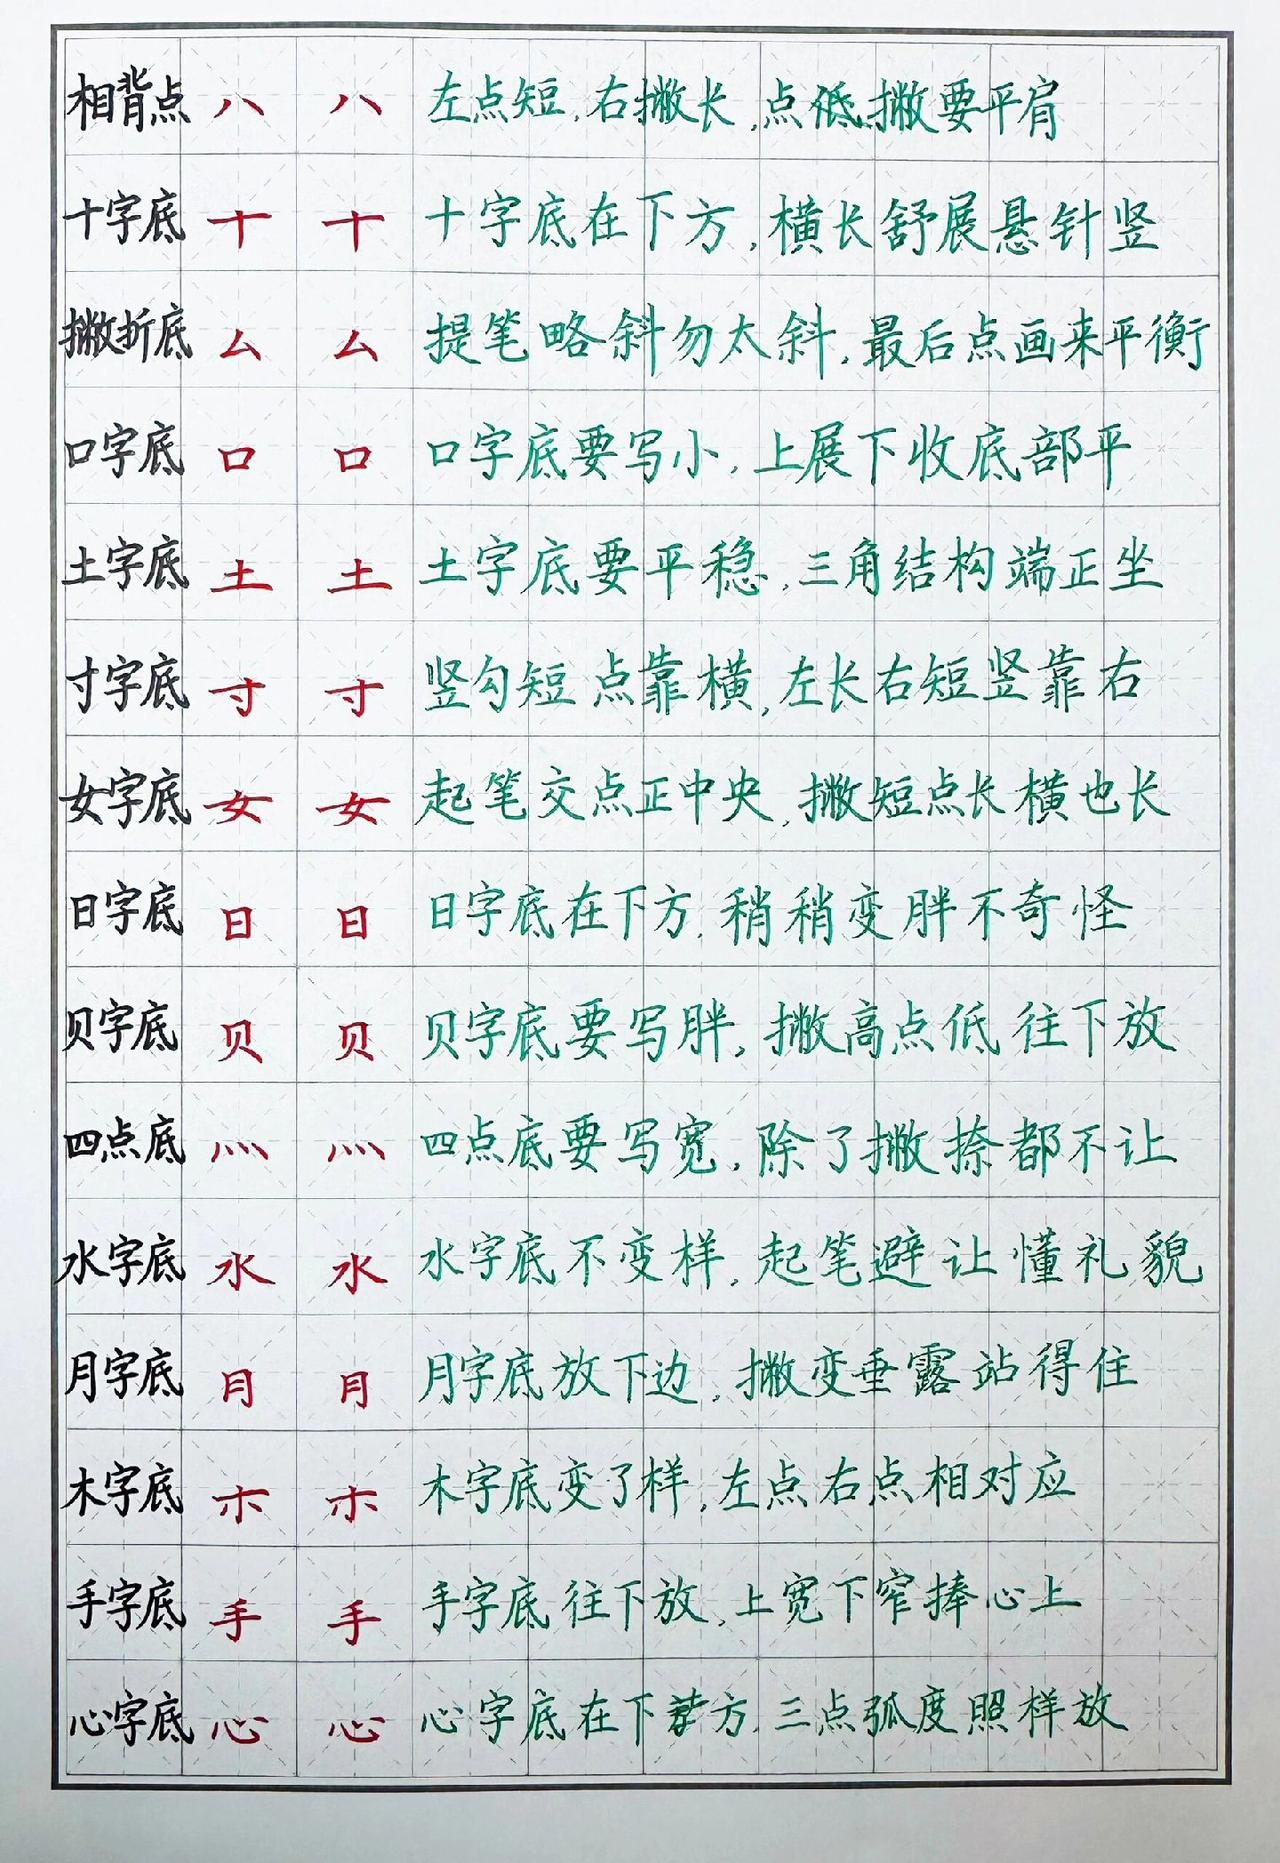 相背点 八 八 左点短,右撇长,点低撇要平肩
十字底 十 十 十字底在下方,横长舒展悬针竖
撇折底 厶 厶 提笔略斜勿太斜,最后点画来平衡
口字底 口 口 口字底要写小,上展下收底部平
土字底 土 土 土字底要平稳,三角结构端正坐
寸字底 寸 寸 竖勾短点靠横,左长右短竖靠右
女字底 女 女 起笔交点正中央,撇短点长横也长
日字底 日 日 日字底在下方,稍稍变胖不奇怪
贝字底 贝 贝 贝字底要写胖,撇高点低往下放
四点底 灬 灬 四点底要写宽,除了撇捺都不让
水字底 水 水 水字底不变样,起笔避让懂礼貌
月字底 月 月 月字底放下边,撇变垂露站得住
木字底 朩 朩 木字底变了样,左点右点相对应
手字底 手 手 手字底往下放,上宽下窄捧心上
心字底 心 心 心字底在下方,三点弧度照样放